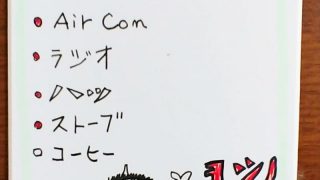 Air Con
ラジオ
ストーブ
コーヒー